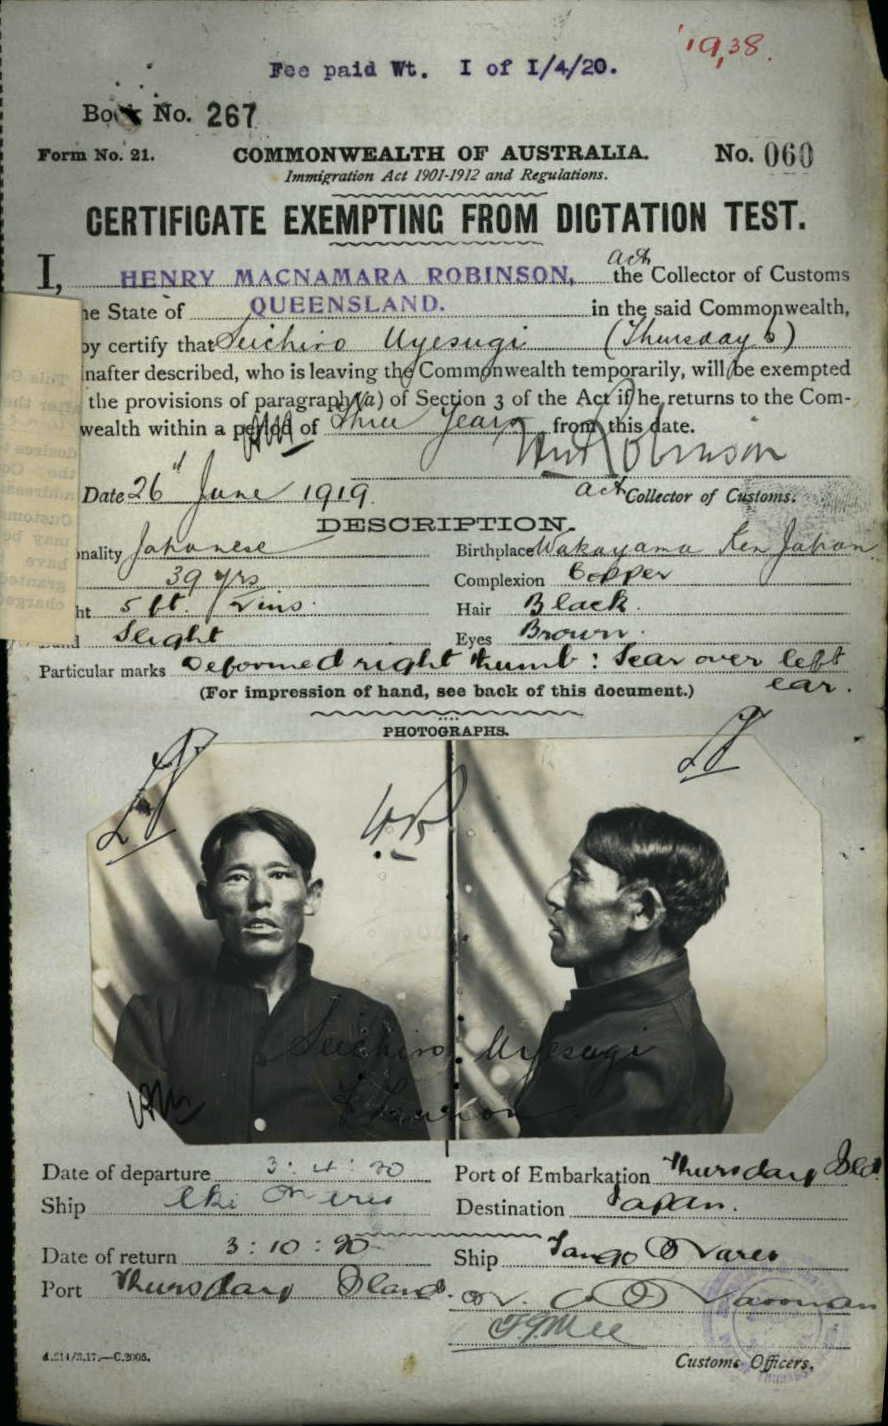 '19,38.
Fee paid Wt. I of 1/4/20.
Book No. 267
Form No. 21. COMMONWEALTH OF AUSTRALIA. No. 060
Immigration Act 1901-1912 and Regulations.
CERTIFICATE EXEMPTING FROM DICTATION TEST.
act
I, HENRY MACNAMARA ROBINSON, the Collector of Customs
he State of QUEENSLAND. in the said Commonwealth,
by certify that Seichiro Uyesugi (Thursday Is)
inafter described, who is leaving the Commonwealth temporarily, will be exempted
the provisions of paragraph (a) of Section 3 of the Act if he returns to the Com-
wealth within a period of Three Years from this date.
Robinson
Date 26th June 1919. act Collector of Customs.
DESCRIPTION.
onality Japanese Birthplace Wakayama Ken Japan
39 yrs Complexion Copper
ht 5 ft. 1/2 ins. Hair Black.
Slight Eyes Brown.
Particular marks Deformed right thumb: Scar over left
ear.
(For impression of hand, see back of this document.)
PHOTOGRAPHS.
Seichiro Uyesugi
Date of departure 3:4:20 Port of Embarkation Thursday Isld.
Ship Aki Maru Destination Japan.
Date of return 3:10:20 Ship Tango Maru
Port Thursday Island.
4.214/3.17.—C.2005. Customs Officers.